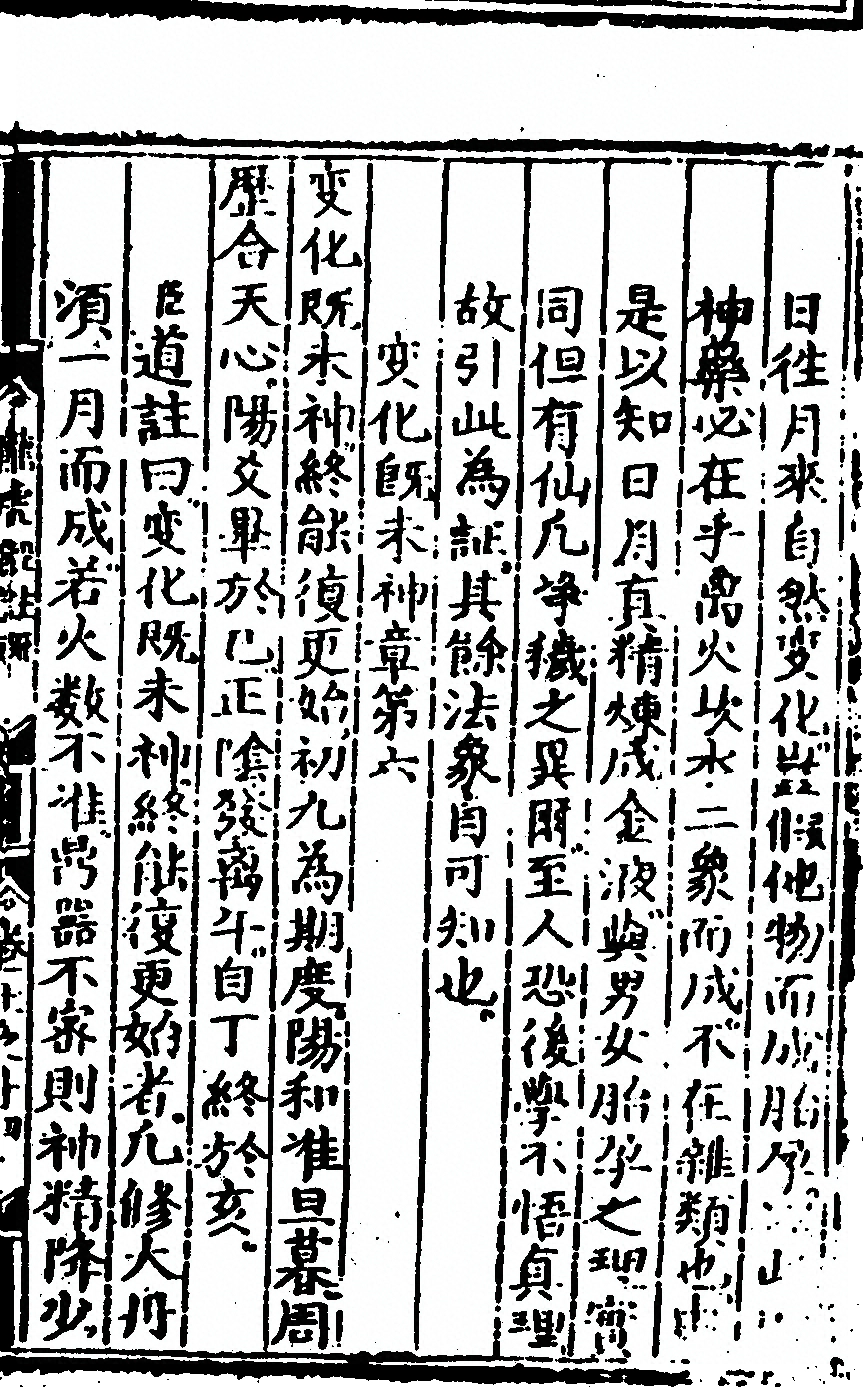 日往月來自然変化豈假他物而成胎孕
神藥必在乎离火坎水二象而成不在雜類也
是以知日月真精煉成金液與男女胎孕之理實
同但有仙凢净穢之異爾至人恐後學不悟真理
故引此為証其餘法象自可知也
変化既未神章第六
変化既未神終能復更始初九為期度陽和准旦暮周
歷合天心陽爻畢於巳正隂發离午自丁終於亥
臣道註曰変化既未神終能復更始者凢修大丹
湏一月而成若火数不准鼎器不宻則神精降少